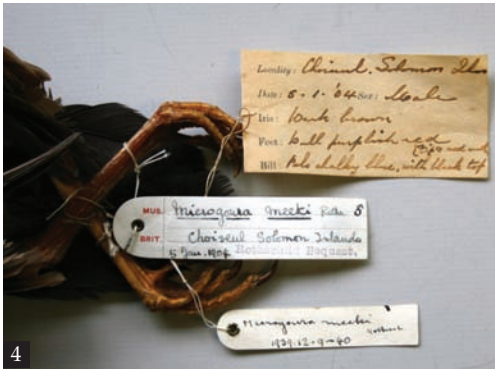 Locality: Choiseul. Solomon Ids
Date: 5·1·'04 Sex: Male
Iris: Dark brown
Feet: Dull purplish red
Bill: Pale chalky blue, with black top
MUS. Microgoura meeki Roths 5
BRIT. Choiseul Solomon Islands
5 Jan. 1904 Rothschild Bequest.
Microgoura meeki
1939·12·9·40
4